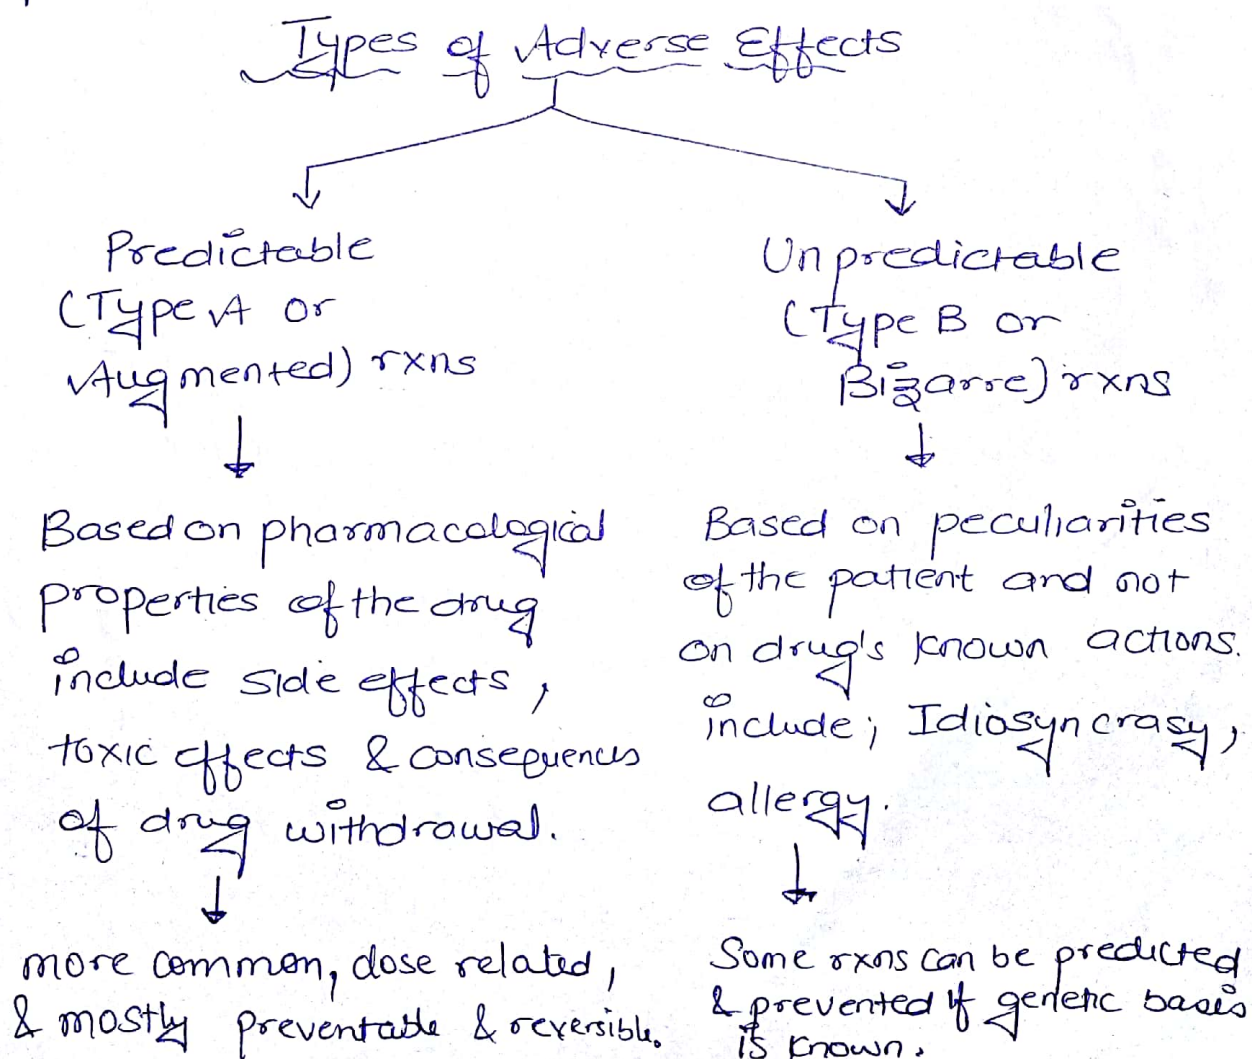 Types of Adverse Effects
Predictable
(Type A or
Augmented) rxns
Based on pharmacological
properties of the drug
include side effects,
toxic effects & consequences
of drug withdrawal.
more common, dose related,
& mostly preventable & reversible.
Unpredictable
(Type B or
Bizarre) rxns
Based on peculiarities
of the patient and not
on drug's known actions.
include; Idiosyncrasy,
allergy.
Some rxns can be predicted
& prevented if genetic basis
is known.